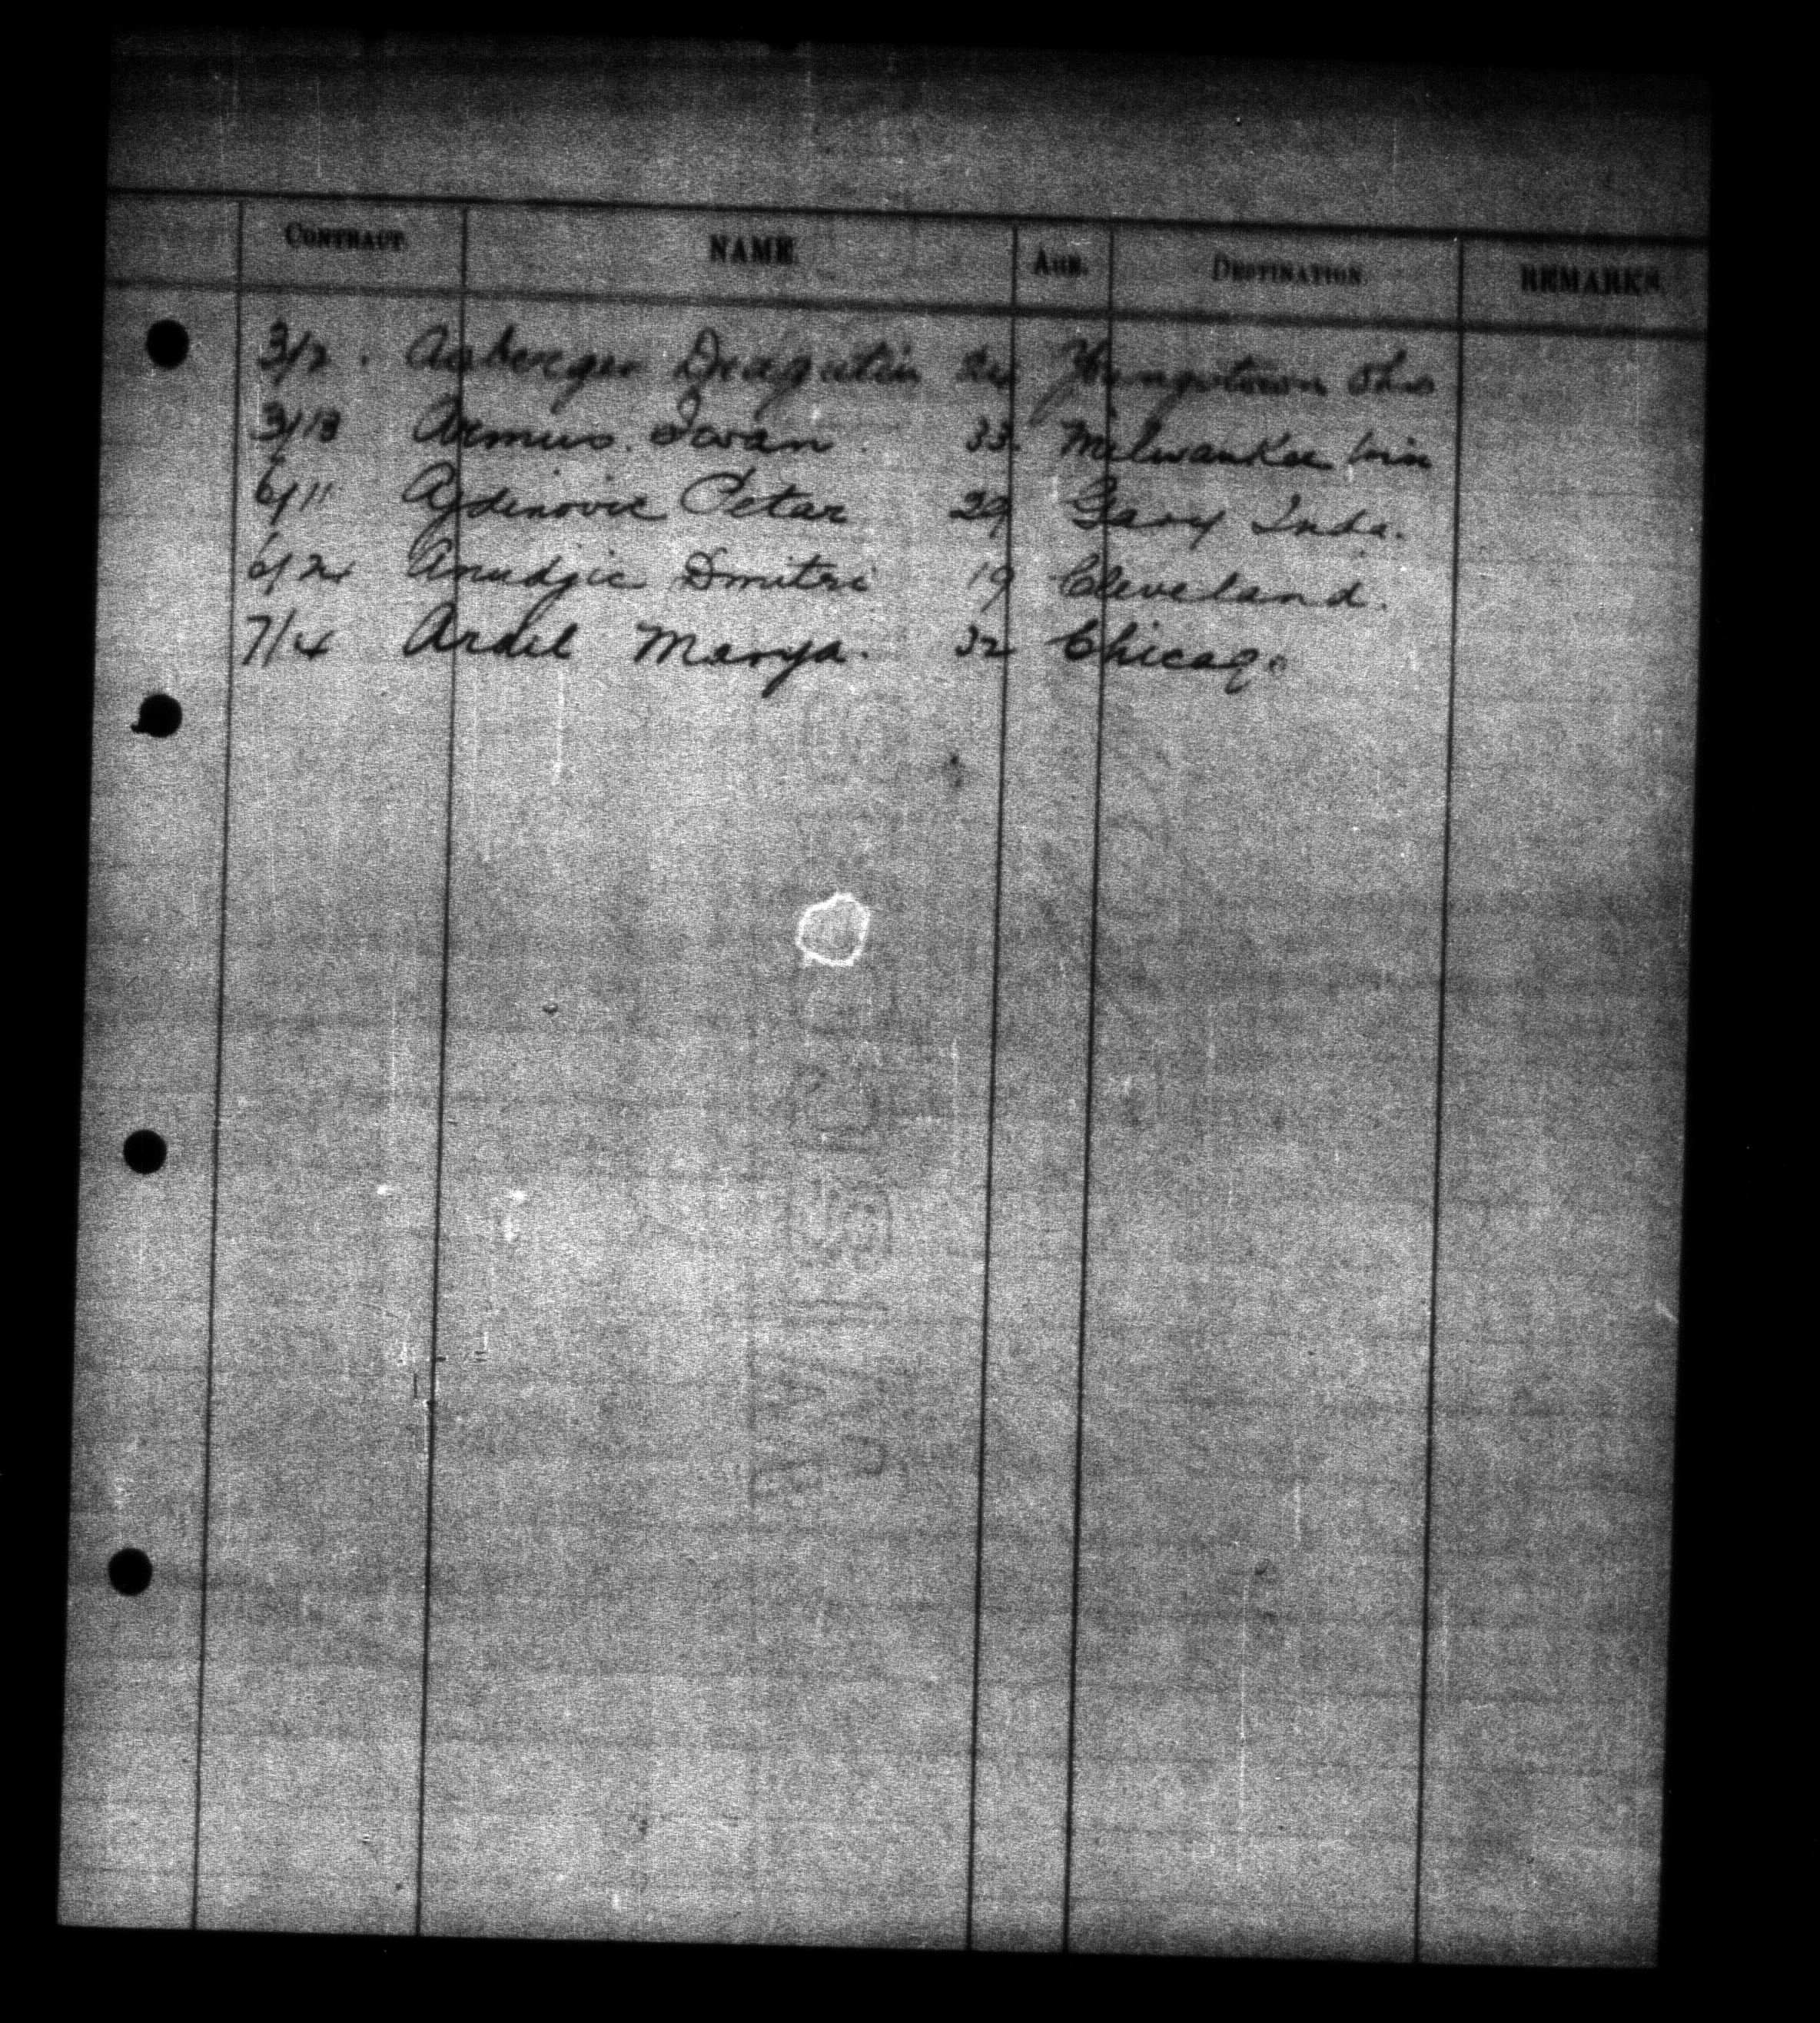 CONTRACT. NAME. AGE. DESTINATION. REMARKS.
3/2. Asberger Dragutin 24 Youngstown Ohio
3/13 Armus. Ivan 33. Milwaukee Win
6/11 Ajdinovic Petar 29 Gary Inda.
6/24 Anudjic Dmitri 19 Cleveland.
7/4 Ardel Marya. 32 Chicago